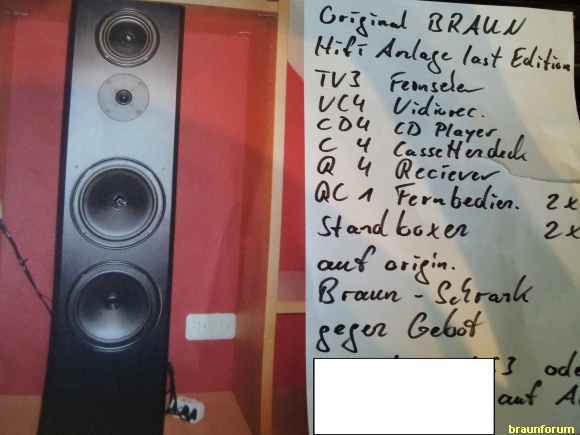 Original BRAUN
Hifi Anlage last Edition
TV3 Fernseher
VC4 Vidiorec.
CD4 CD Player
C 4 Cassettendeck
R 4 Reciever
QC 1 Fernbedien. 2x
Standboxen 2x
auf origin.
Braun-Schrank
gegen Gebot
auf
braunforum